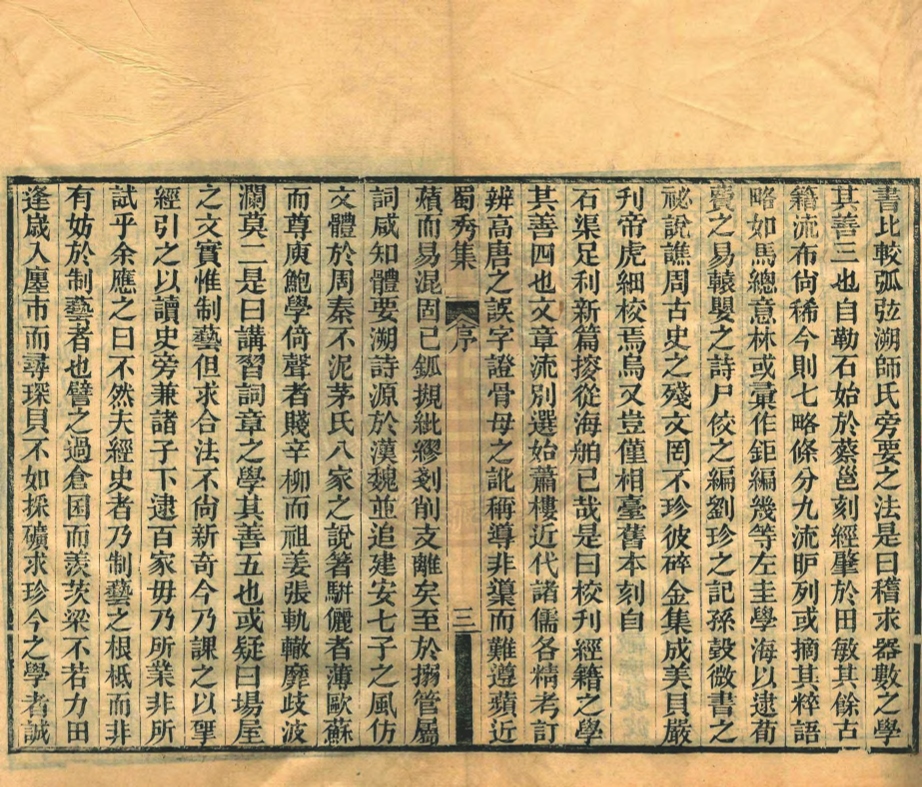 書比較弧弦溯師氏旁要之法是曰稽求器數之學
其善三也自勒石始於蔡邕刻經肇於田敏其餘古
籍流布尙稀今則七略條分九流昈列或摘其粹語
略如馬總意林或彙作鉅編幾等左圭學海以逮荀
賡之易轅嬰之詩尸佼之編劉珍之記孫瑴微書之
祕說譙周古史之殘文罔不珍彼碎金集成美貝嚴
刊帝虎細校焉烏又豈僅相臺舊本刻自
石渠足利新篇掞從海舶已哉是曰校刋經籍之學
其善四也文章流別選始蕭樓近代諸儒各精考訂
辨高唐之誤字證骨母之訛稱導非䆃而難遵蘋近
蜀秀集
序
三
薠而易混固已鈲摫紕繆剗削支離矣至於搦管屬
詞咸知體要溯詩源於漢魏並追建安七子之風仿
文體於周秦不泥茅氏八家之說箸駢儷者薄歐蘇
而尊庾鮑學倚聲者賤辛柳而祖姜張軌轍靡歧波
瀾莫二是曰講習詞章之學其善五也或疑曰場屋
之文實惟制藝但求合法不尙新奇今乃課之以羣
經引之以讀史旁兼諸子下逮百家毋乃所業非所
試乎余應之曰不然夫經史者乃制藝之根柢而非
有妨於制藝者也譬之過倉囷而羨茨梁不若力田
逢歲入廛市而尋琛貝不如採礦求珍今之學者誠